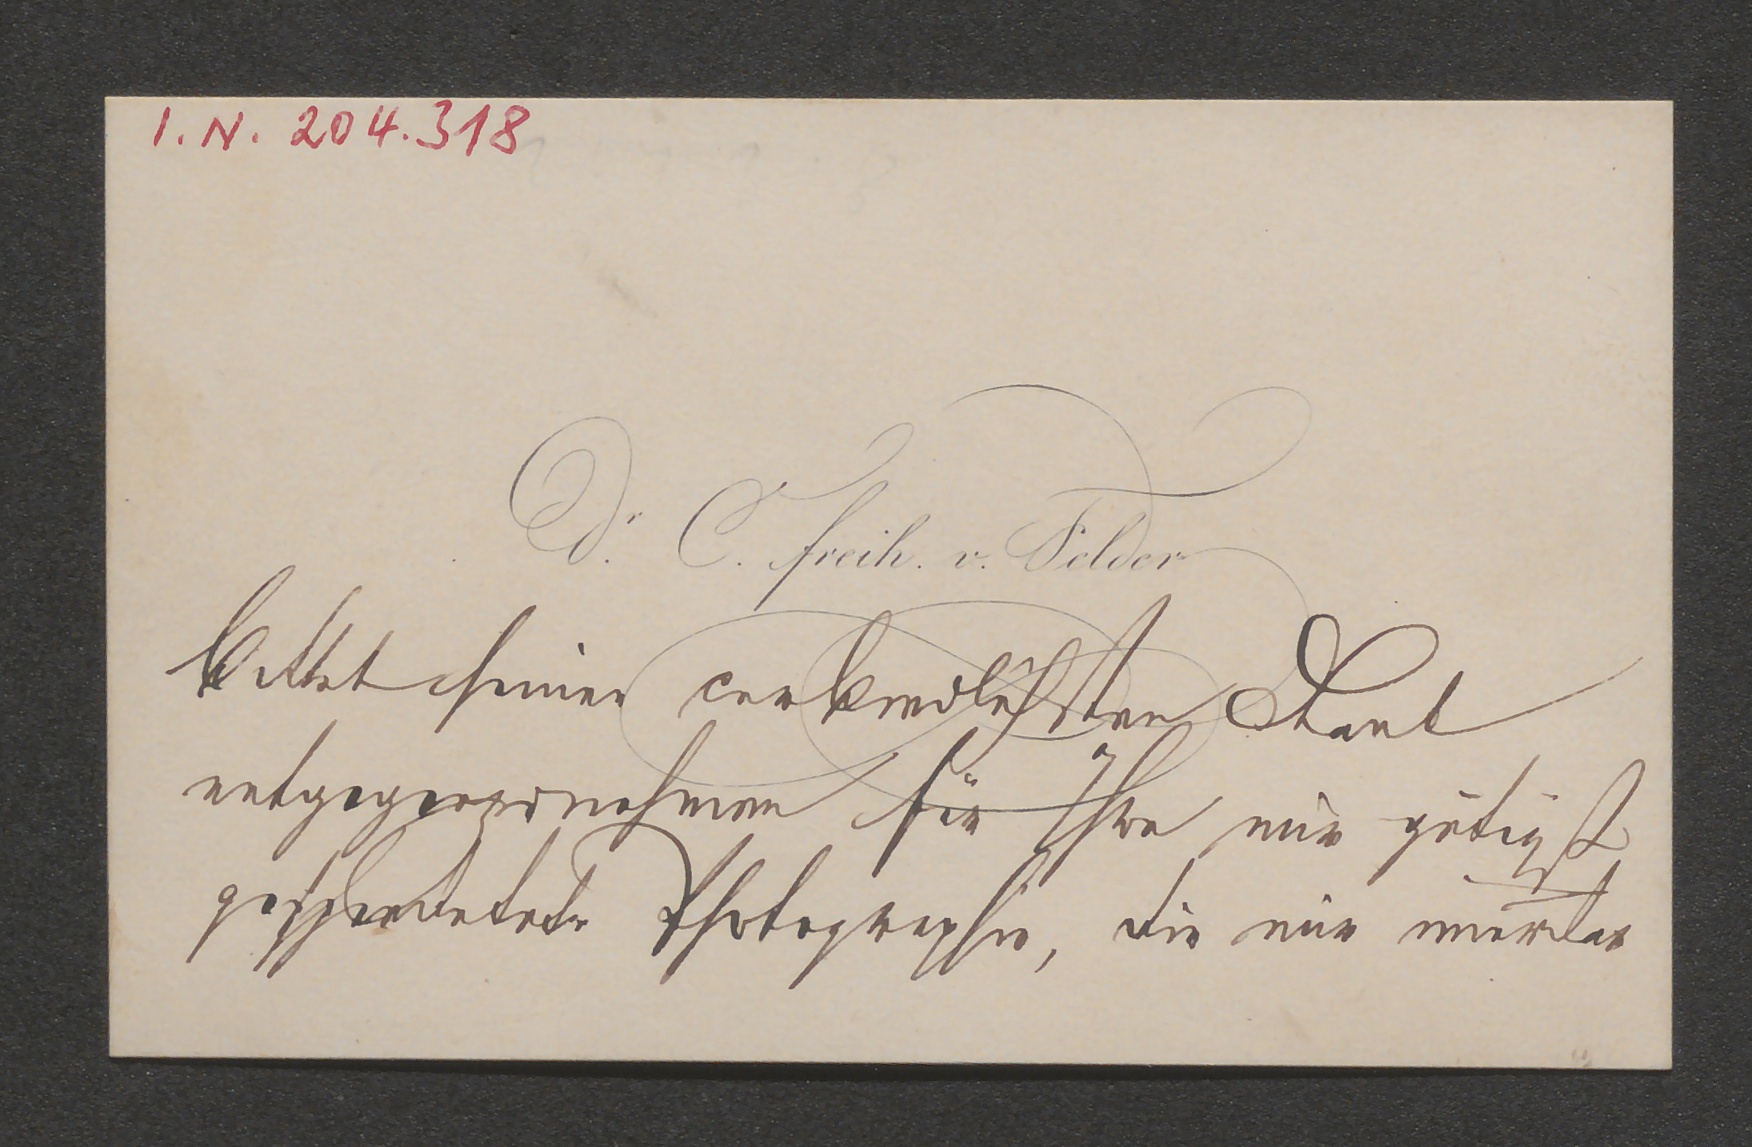 I.N. 204.318
Dr. C. Freih. v. Felder
bittet seinen verbindlichsten Dank
entgegenzunehmen für Ihre mir gütigst
gespendete Photographie, die mir